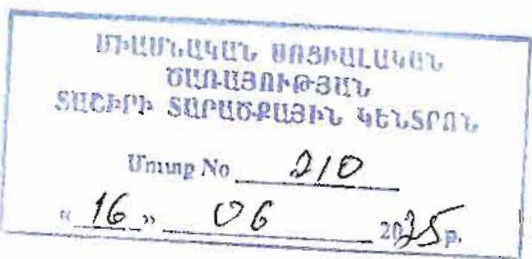 ՄԻԱՍՆԱԿԱՆ ՍՈՑԻԱԼԱԿԱՆ
ԾԱՌԱՅՈՒԹՅԱՆ
ՏԱՇԻՐԻ ՏԱՐԱԾՔԱՅԻՆ ԿԵՆՏՐՈՆ
Մուտք No 210
« 16 » 06 2025 թ.